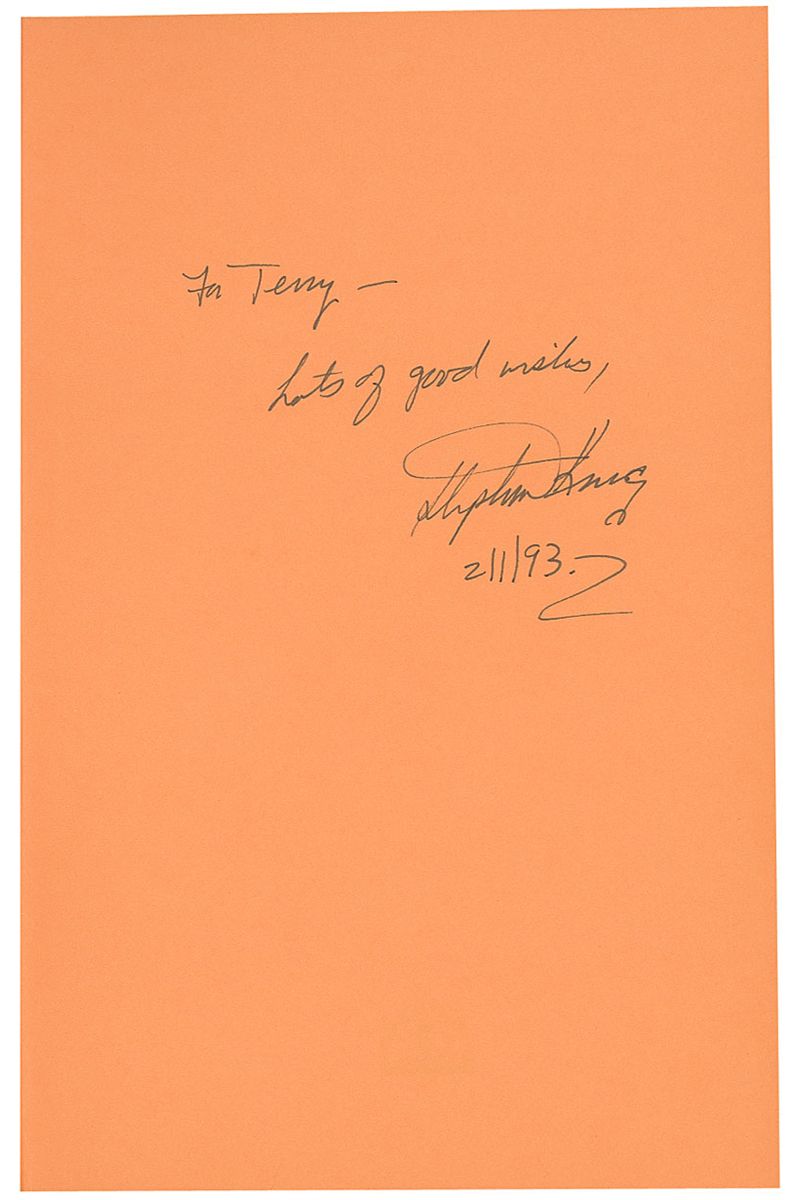 For Terry —
Lots of good wishes,
Stephen King
2/1/93.